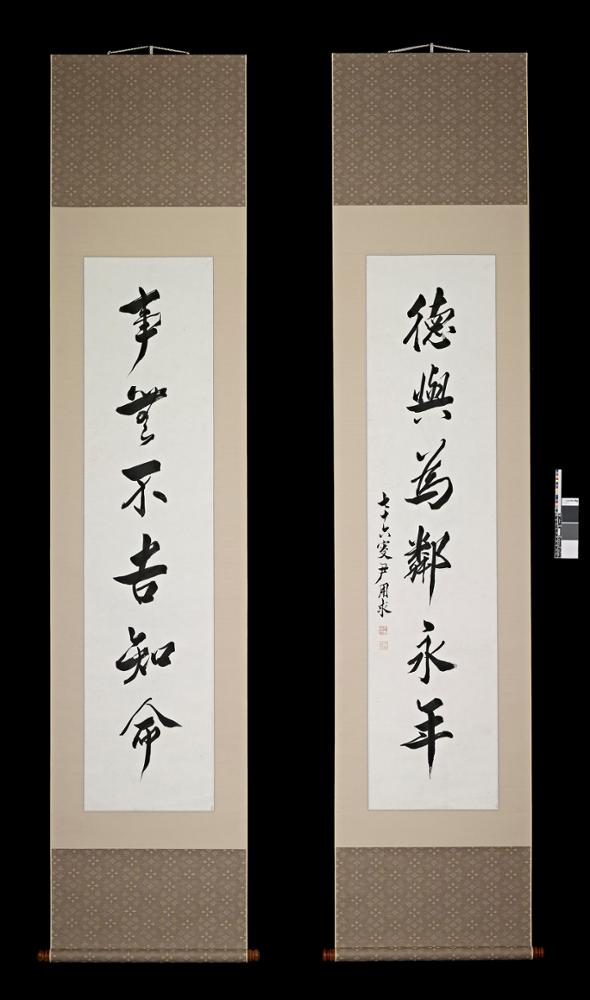 事無不吉知命
德與為鄰永年
七十六叟尹用求